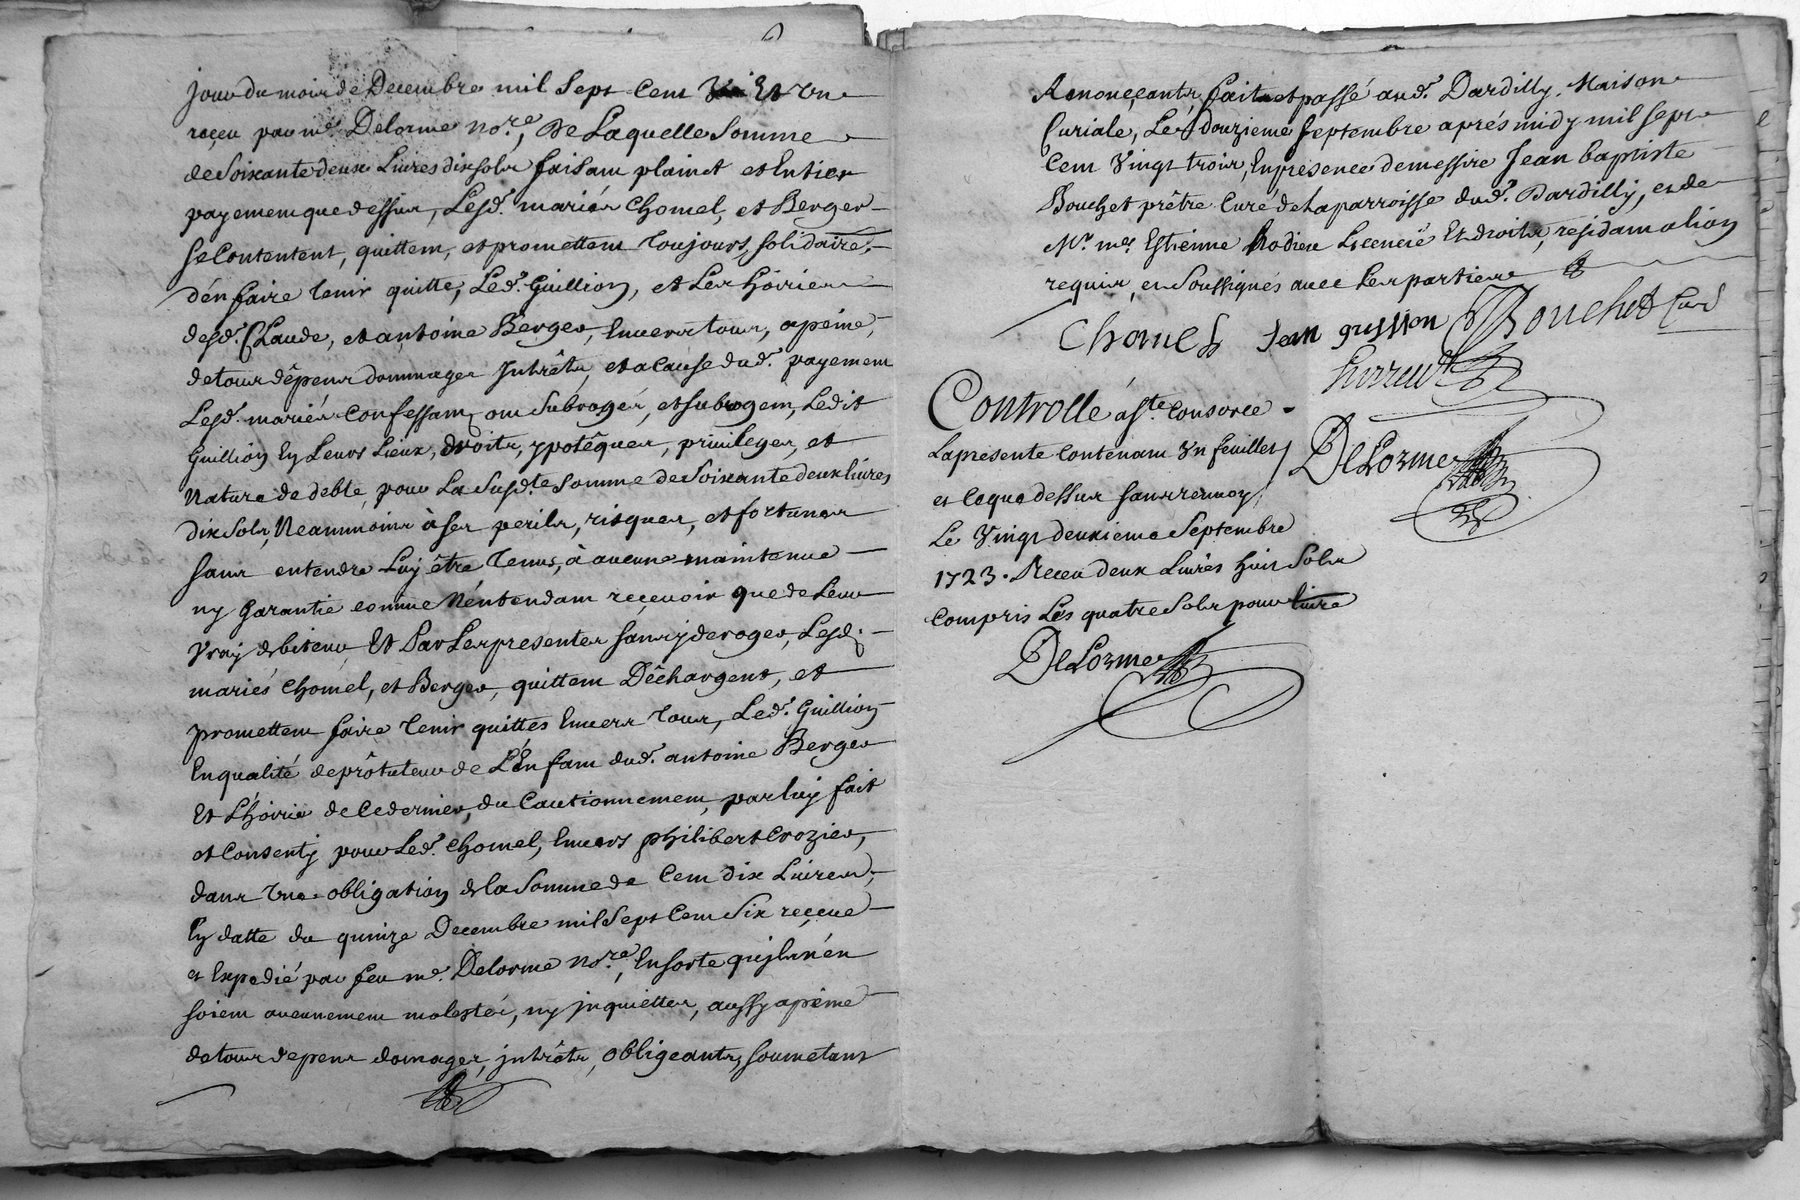 jour du mois de Decembre mil Sept Cent Et Une
reçeu par me. Delorme nore, De Laquelle Somme
de Soixante deux Livres dix sols faisant plainct et Entier
payement que dessus, Lesd. mariés Chomel, et Berger
se Contentent, quittent, et promettent Toujours, solidaire,
d'en faire Tenir quitte, Led. Guillion, et Les hôiries
desd. Claude, et antoine Berger, Envers tous, a peine,
de tous dêpens dommages Intrêts, et a Cause dud. payement
Lesd. mariés Confessant, ont Subrogés, et subrogent, Ledit
Guillion En Leurs Lieux, droits, ypotêques, privileges, et
Nature de debte, pour La Susd.te Somme de Soixante deux livres
dix Sols, Neanmoins à Ses perils, risques, et fortunes
sans entendre Luy être Tenus, à aucune maintenue
ny Garantie comme N'entendant reçevoir que de Leur
Vray debiteur Et Par Les presentes sans y deroger, Lesd.
mariés Chomel, et Berger, quittent Dêchargent, et
promettent faire Tenir quittes Envers Tous, Led. Guillion
En qualité de prôtuteur de L'Enfant dud. antoine Berger
Et L'hoirie de Ce dernier, du Cautionnement, par luy fait
et Consenty pour Led. Chomel, Envers philibert Crozier,
dans Une obligation de la Somme de Cent dix Livres,
En datte du quinze Decembre mil Sept Cent Six reçeue
et Expedié par feu me. Delorme nore, En sorte qu'ils n'en
soient aucunement molestés, ny jnquiettes, aussy a peine
de tous depens domages, jntrêts, obligeants, soumetans
Renonçants, fait et passé aud. Dardilly, Maison
Curiale, Le douzieme Septembre aprés midy mil sept
Cent Vingt trois, En presence de messire Jean baptiste
Bouchet prêtre Curé de La parroisse dud. Dardilly, et de
Mr. me. Estienne Rodieu Licencié Et droits, residant a lion
requis, en Soussignés avec Les parties
Chomel Jean gullion JBouchet Curé
DeLorme
Controllé
La presente Contenant Un feuillet
et Ce que dessus sans renvoy
Le Vingt deuxieme Septembre
1723. Receu deux Livres huit Sols
Compris Les quatre Sols pour livre
DeLorme